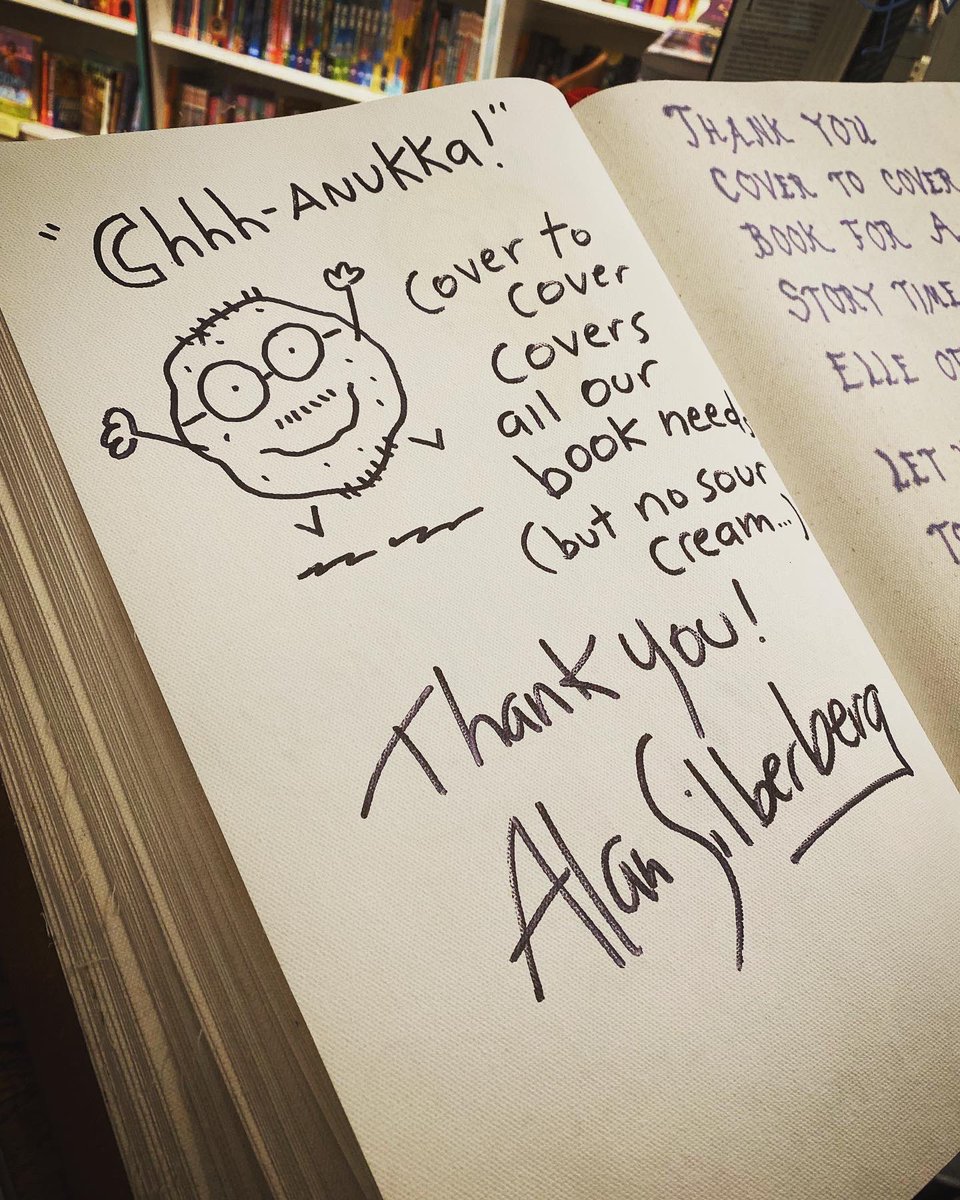 "Chhh-ANUKKa!"
Cover to
cover
covers
all our
book needs
(but no sour
cream...)
Thank you!
Alan Silberberg
THANK YOU
COVER TO COVER
BOOK FOR A
STORY TIME
ELLE
LET